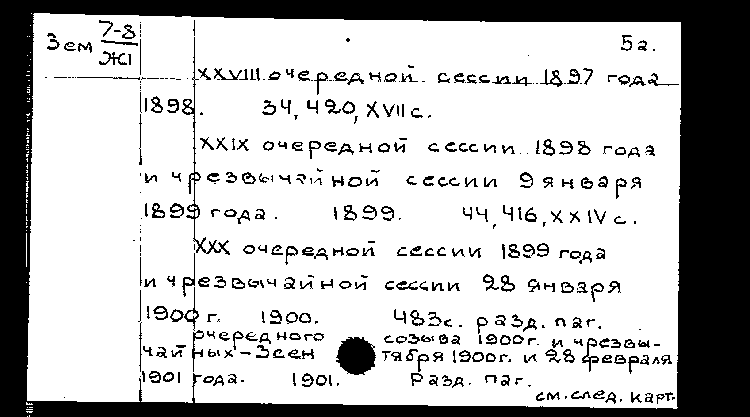 Зем 7-8
Ж1
5а.
XXVIII очередной сессии 1897 года
1898. 34, 420, XVII с.
XXIX очередной сессии 1898 года
и чрезвычайной сессии 9 января
1899 года. 1899. 44, 416, XXIV с.
XXX очередной сессии 1899 года
и чрезвычайной сессии 28 января
1900 г. 1900. 483 с. разд. паг.
очередного созыва 1900 г. и чрезвы-
чайных - 3 сен тября 1900 г. и 28 февраля
1901 года. 1901. Разд. паг.
см. след. карт.